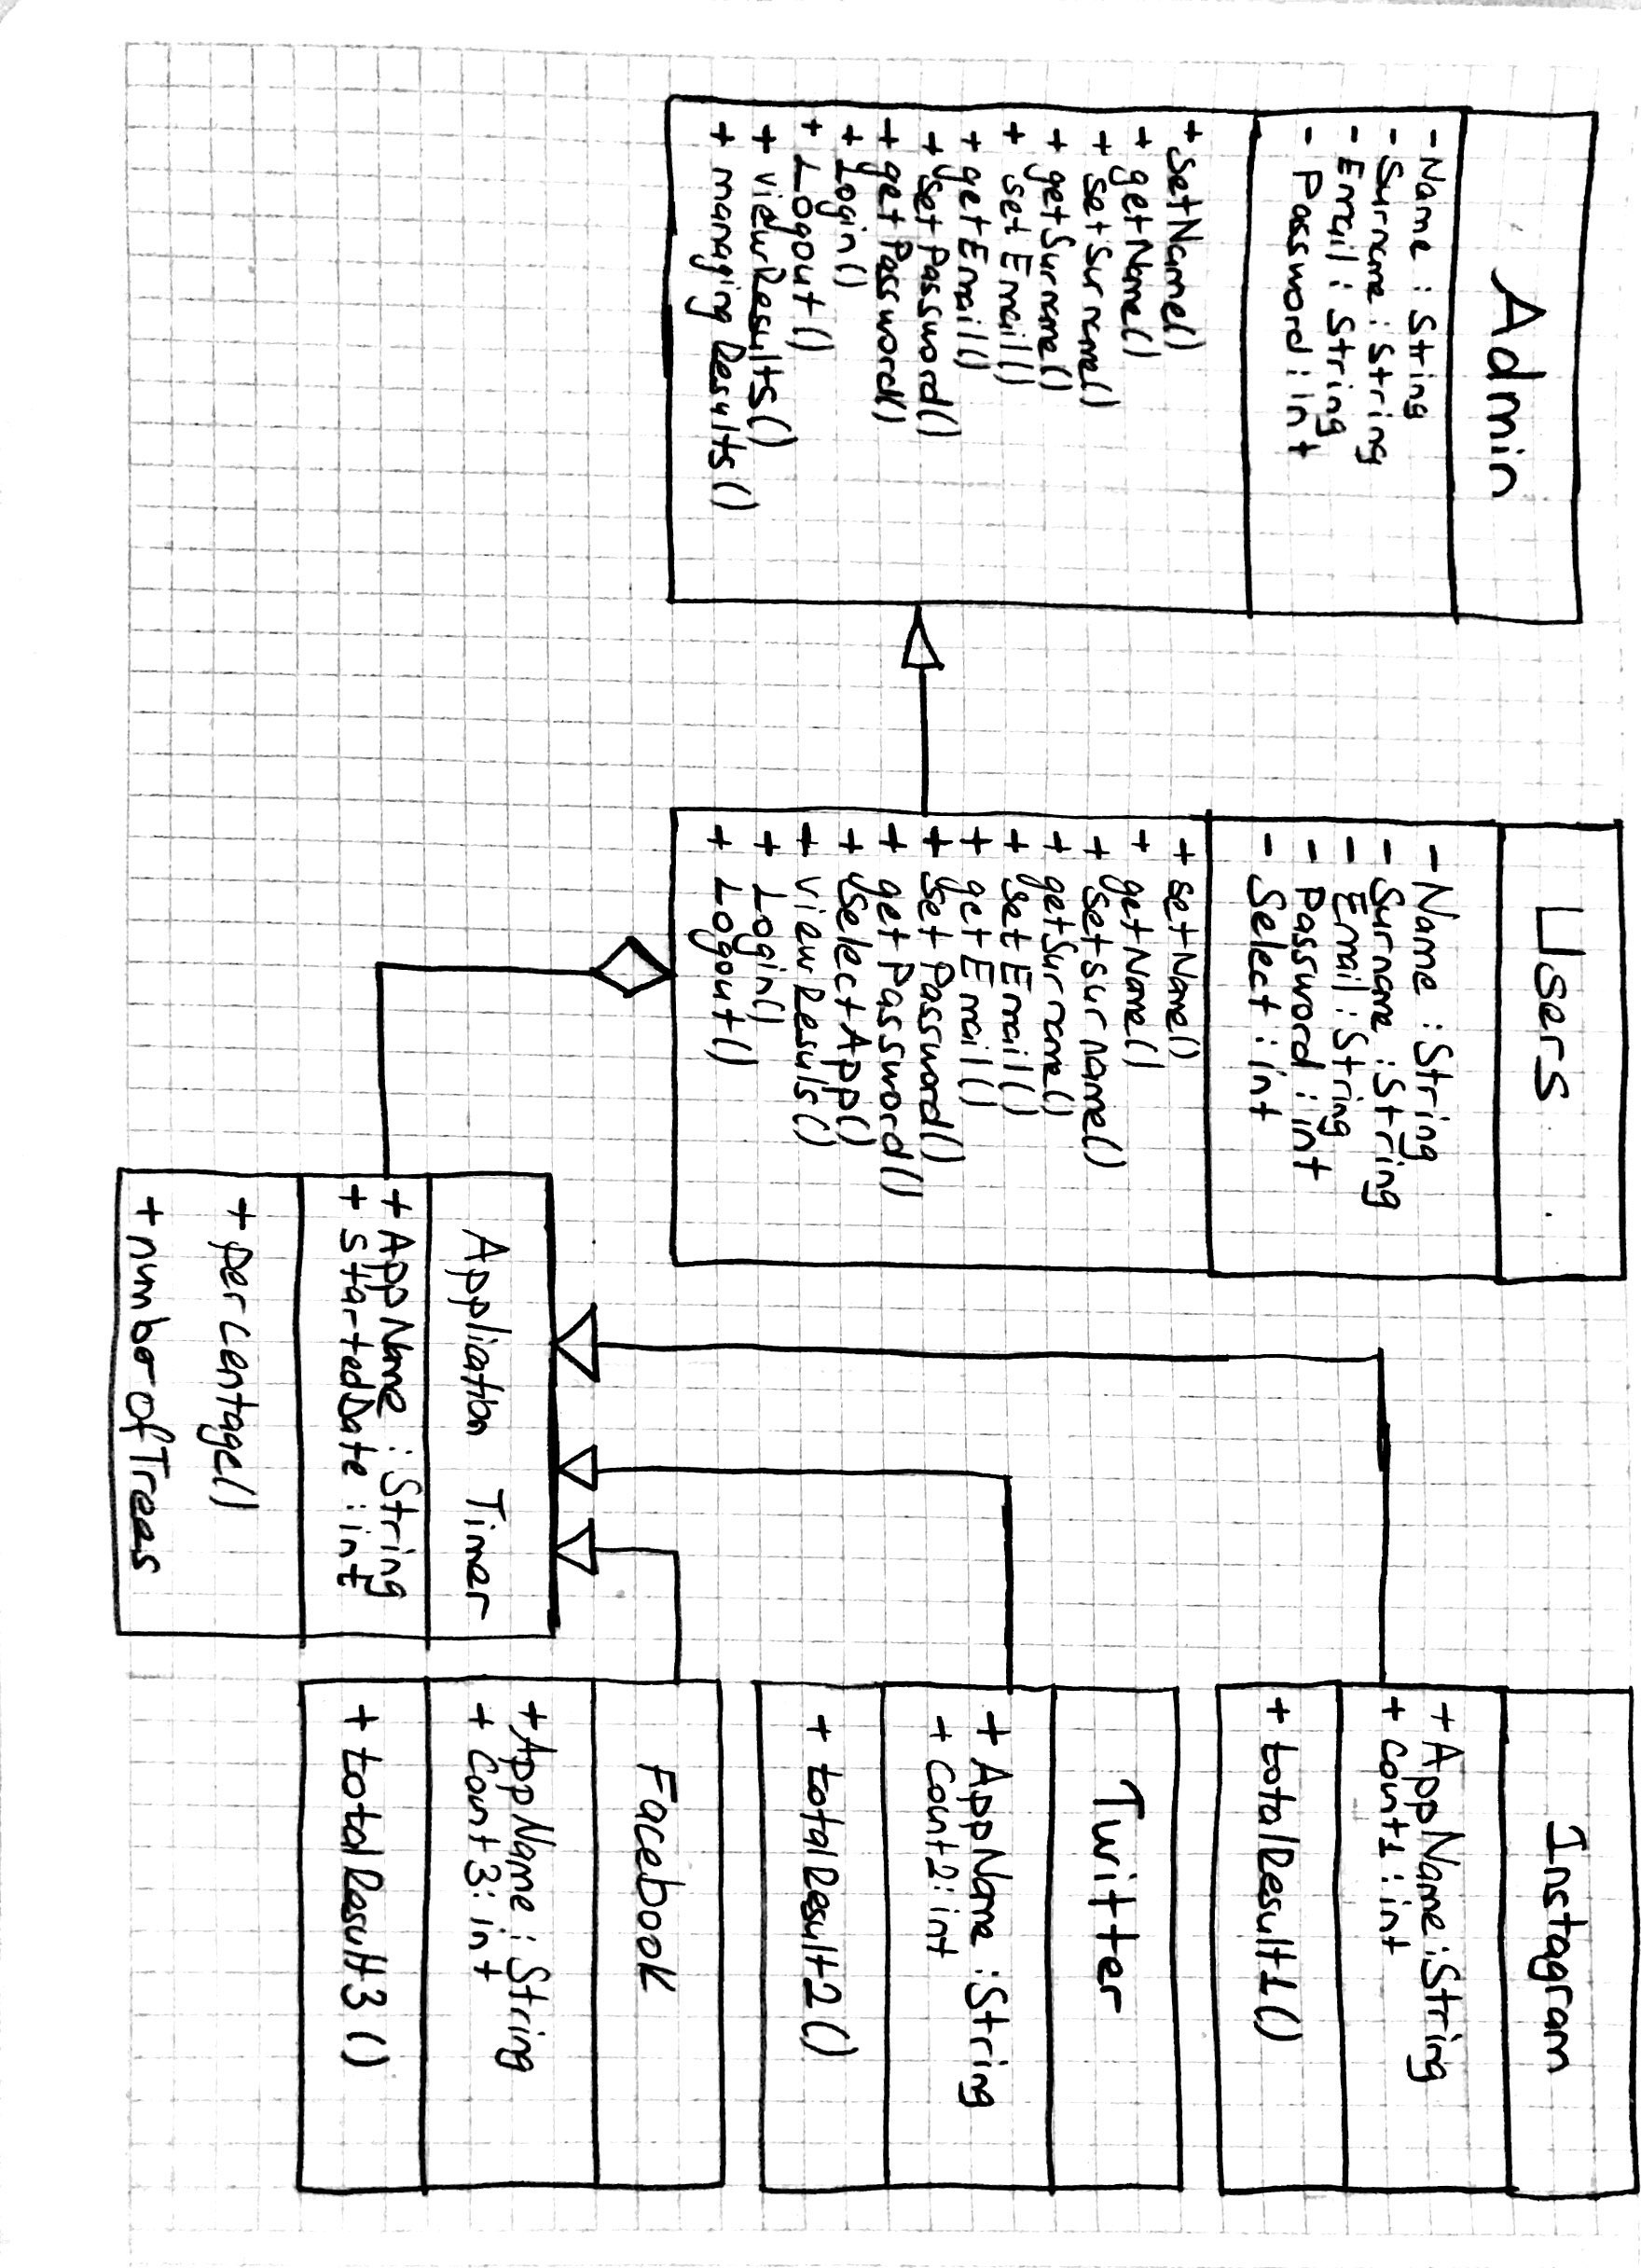 Admin
-Name : String
- Surname : String
- Email : String
- Password : int
+setName()
+ getName()
+ setSurname()
+ getSurname()
+ setEmail()
+ getEmail()
+ setPassword()
+ getPassword()
+ Login()
+ Logout()
+ viewResults()
+ managingResults()
Users
- Name : String
- Surname : String
- Email : String
- Password : int
- Select : int
+ setName()
+ getName()
+ setsurname()
+ getSurname()
+ setEmail()
+ getEmail()
+ setPassword()
+ getPassword()
+ SelectApp()
+ viewResuls()
+ Login()
+ Logout()
Instagram
+ AppName : String
+ Count1 : int
+ totalResult1()
Twitter
+ AppName : String
+ Count2: int
+ totalResult2()
Facebook
+AppName : String
+ Count3: int
+ totalResult3()
Application Timer
+ AppName : String
+ startedDate : int
+ percentage()
+numberofTrees